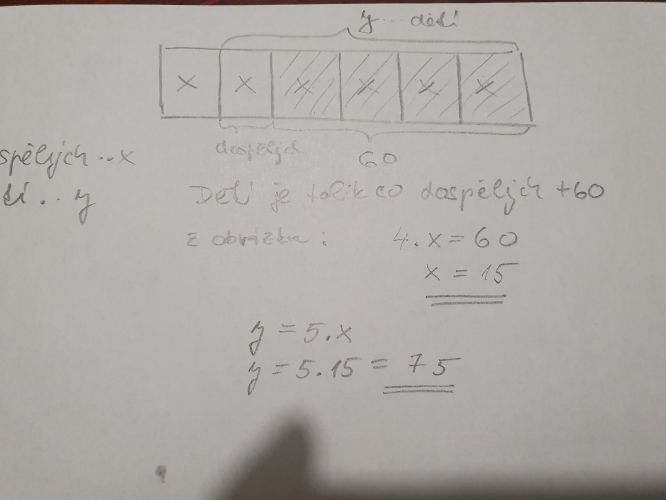 y... dětí
x x x x x x
dospělých
60
spělých .. x
tí .. y
Dětí je tolik co dospělých +60
z obrázku: 4.x = 60
x = 15
y = 5.x
y = 5.15 = 75